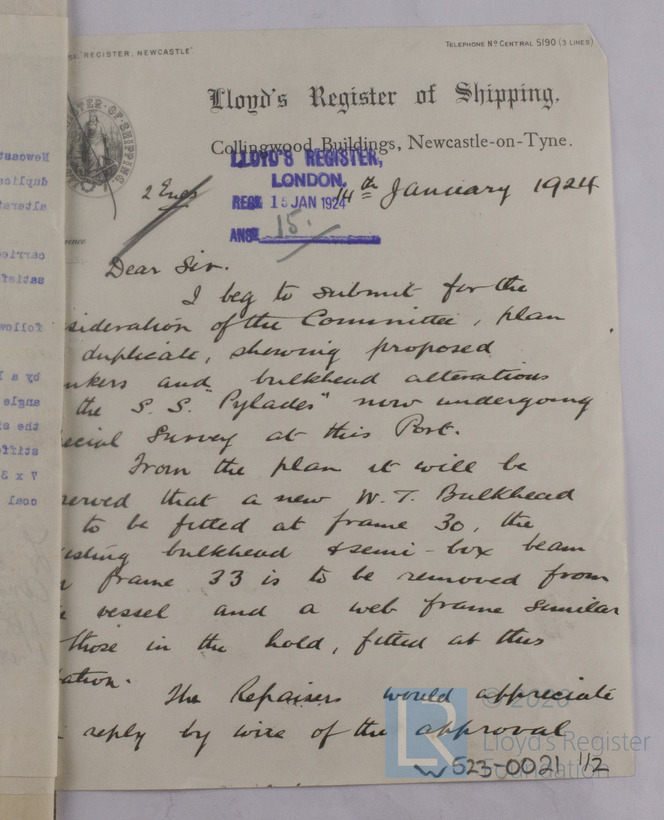 "REGISTER, NEWCASTLE"
TELEPHONE Nº CENTRAL 5190 (3 LINES)
Lloyd's Register of Shipping,
Collingwood Buildings, Newcastle-on-Tyne.
LLOYD'S REGISTER,
LONDON.
RECD 15 JAN 1924
ANSD 15.
2 Encs
14th January 1924
Dear Sir.
I beg to submit for the
sideration of the Committee, plan
duplicate, shewing proposed
nkers and bulkhead alterations
the S.S. "Pylades" now undergoing
ecial Survey at this Port.
From the plan it will be
served that a new W.T. Bulkhead
to be fitted at frame 30, the
isting bulkhead & semi-box beam
frame 33 is to be removed from
vessel and a web frame similar
those in the hold, fitted at this
tation.
The Repairers would appreciate
reply by wire of the approval
© 2026
Lloyd's Register
Foundation
W523-0021 1/2